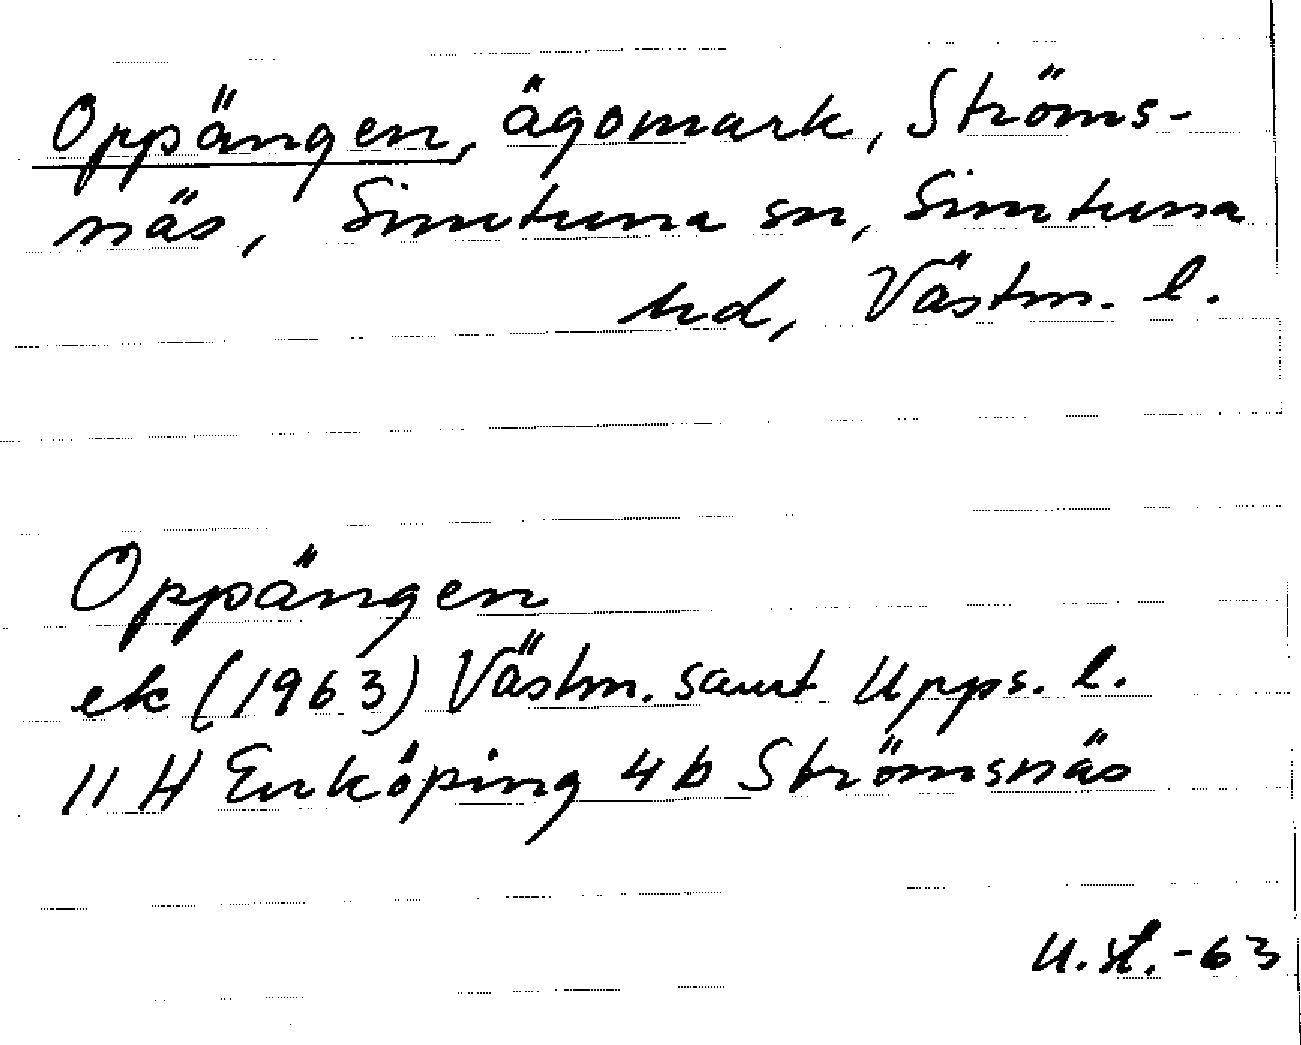 Oppängen, ägomark, Ströms-
näs, Simtuna sn, Simtuna
hd, Västm. l.
Oppängen
ek (1963) Västm. samt Upps. l.
11 H Enköping 4 b Strömsnäs
U.St.-63